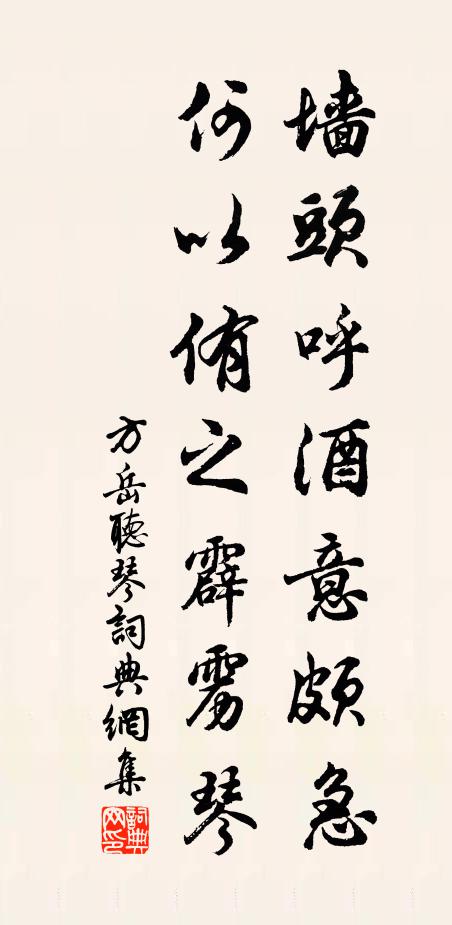 墙頭呼酒意頗急
何以侑之霹雳琴
方岳聽琴詞典網集
詞典网印